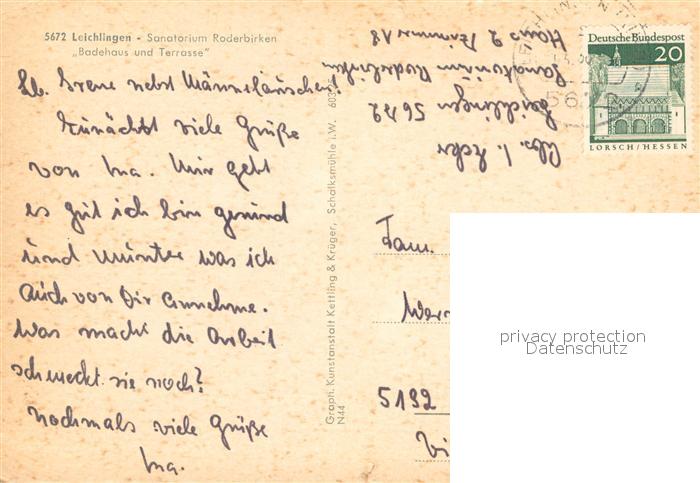 5672 Leichlingen - Sanatorium Roderbirken
„Badehaus und Terrasse"
Lb. Irene nebst Männeläuschen!
Zunächst viele Grüße
von Ina. Mir geht
es gut ich bin gesund
und munter was ich
auch von Dir annehme.
Was macht die Arbeit
schmeckt sie noch?
Nochmals viele Grüße
Ina.
Graph. Kunstanstalt Kettling & Krüger, Schalksmühle i.W.
N44
Abs. I.
Leichlingen 5672
Sanatorium Roderbirken
Haus 2 Zimmer 18
Deutsche Bundespost
20
LORSCH/HESSEN
Fam.
Wer
5192
privacy protection
Datenschutz